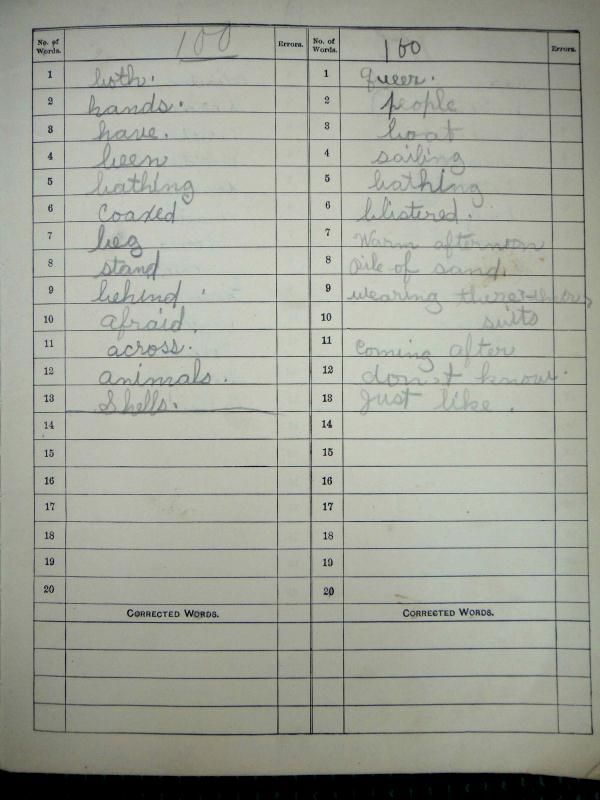 No. of Words. 100 Errors.
1 both.
2 hands.
3 have.
4 been
5 bathing
6 coaxed
7 beg
8 stand
9 behind.
10 afraid.
11 across.
12 animals.
13 Shells.
14
15
16
17
18
19
20
CORRECTED WORDS.
No. of Words. 100 Errors.
1 queer.
2 people
3 boat
4 sailing
5 bathing
6 blistered.
7 Warm afternoon
8 Pile of sand.
9 wearing
10 suits
11 Coming after
12 don't know.
13 Just like.
14
15
16
17
18
19
20
CORRECTED WORDS.